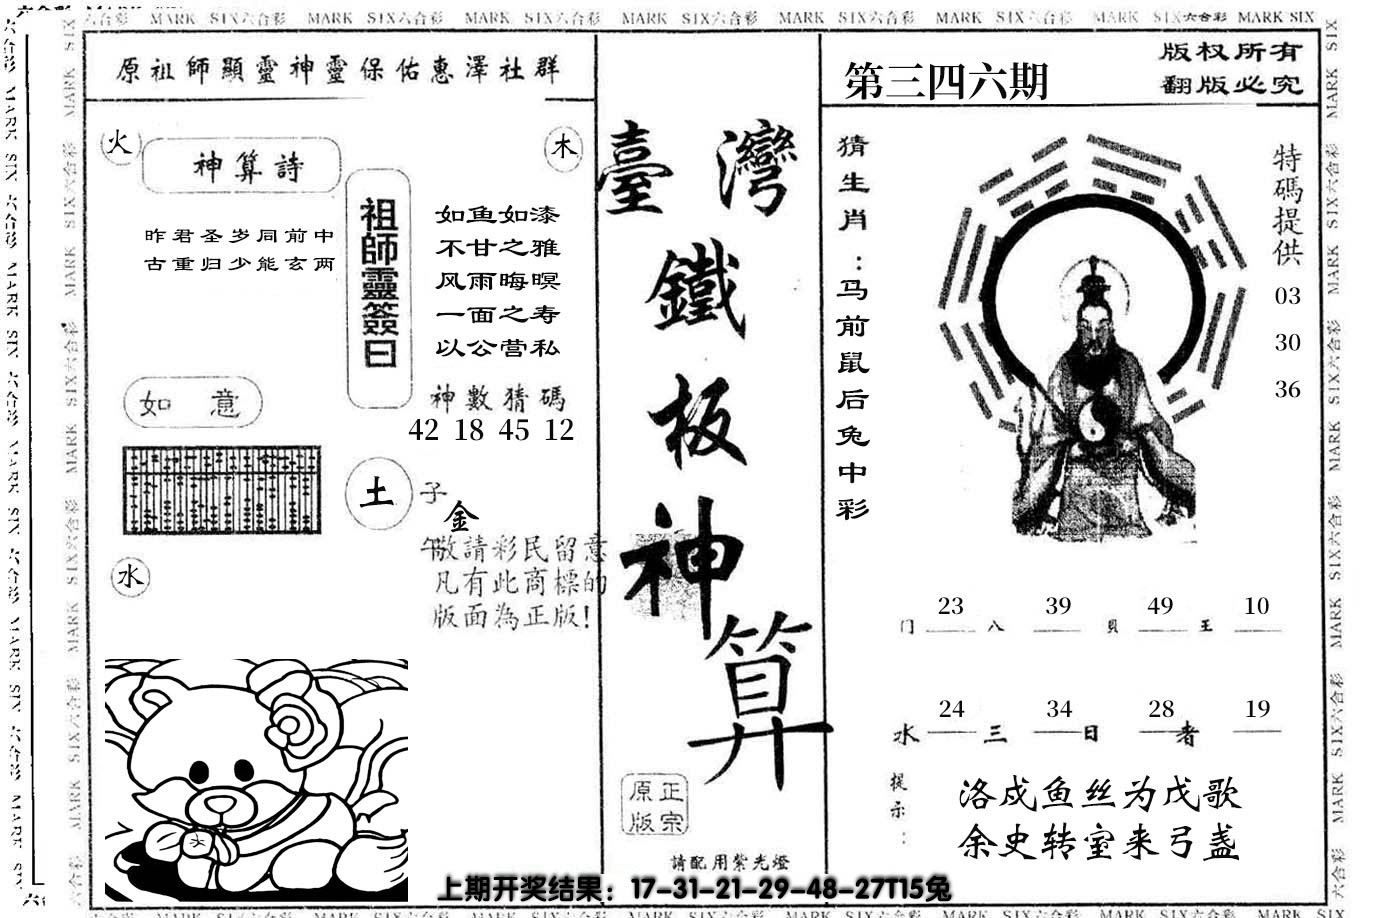 六合彩 MARK SIX六合彩 MARK SIX六合彩 MARK SIX六合彩 MARK SIX六合彩 MARK SIX六合彩 MARK SIX六合彩 MARK SIX六合彩 MARK SIX
原祖師顯靈神靈保佑惠澤社群
火
神算詩
木
昨君圣岁同前中
古重归少能玄两
祖師靈簽曰
如鱼如漆
不甘之雅
风雨晦暝
一面之寿
以公营私
神數猜碼
42 18 45 12
如意
土
子
金
午
敬請彩民留意
凡有此商標的
版面為正版!
水
臺灣
鐵
板
神
算
原正
版宗
請配用紫光燈
第三四六期
版权所有
翻版必究
猜生肖:马前鼠后兔中彩
特碼提供
03
30
36
23 39 49 10
门 八 贝 王
24 34 28 19
水 三 日 者
提示:
洛成鱼丝为戊歌
余史转室来弓盏
上期开奖结果：17-31-21-29-48-27T15兔